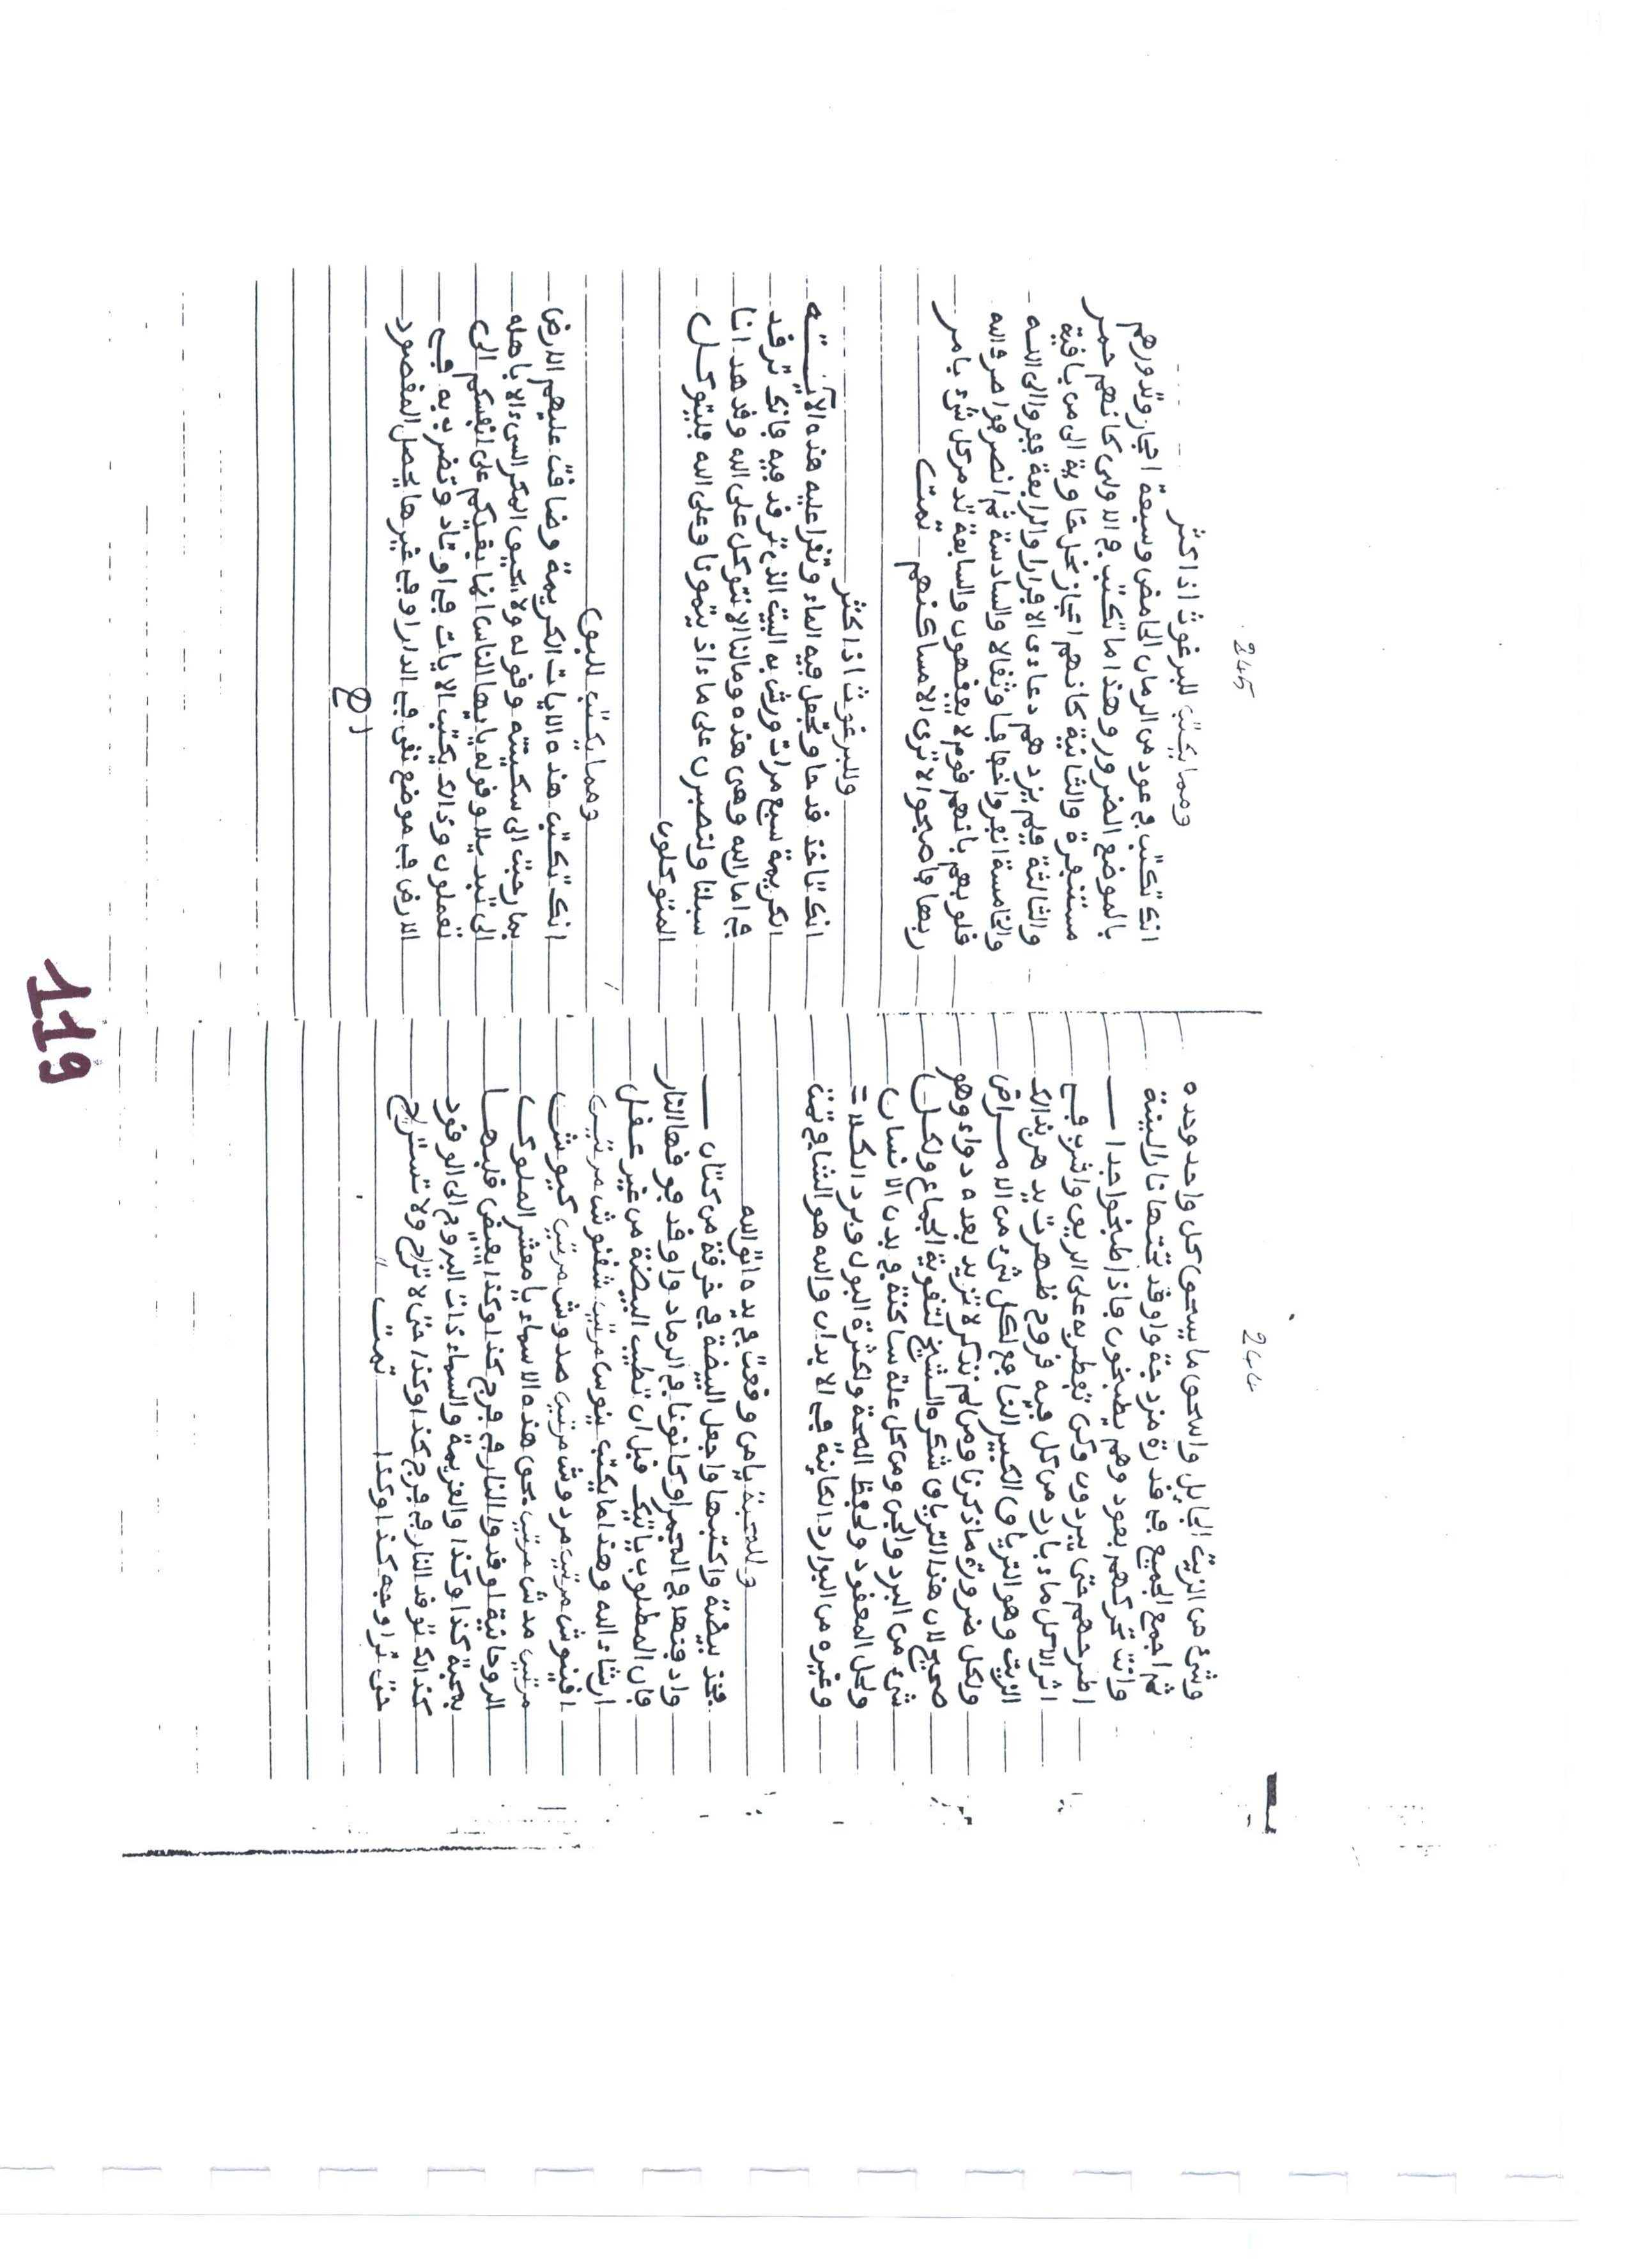 244
وشيء من الزيت الحايل واسحق ما يسحق كل واحد وحده
ثم اجمع الجميع في قدرة مزدجة واوقد تحتها نارا لينة
وانت تحركهم بعود وهم يطبخون فاذا طبخوا جدا
اطرحهم حتى يبردون وكن تفطر به على الريق واشرب في
اثر الاكل ماء بارد من كل فيه قروح ظهرت يد هر بذالك
الزيت وهو الترياق الكبير النافع لكل شيء من الامراض
ولكل ضرورة ما ذكرنا ومن لم نذكر لا تزيد بعده دواء وهو
صحيح لان هذا الترياق شكره الشيخ لتقوية الجماع ولكل
شيء من البرد والجن ومن كل علة ساكنة في بدن الانسان
ولحل المعقود ولحفظ الصحة ولكثرة البول وبرد الكلا
وغيره من البوارد الكاينة في الابدان والله هو الشافي تمت
وللمحبة يا من وقعت في يده اتق الله
فخذ بيضة واكتبها واجعل البيضة في خرقة من كتان
وادفنها في المجمر او كانونا في الرماد واوقد فوقها النار
فان المطلوب ياتيك قبل ان تطيب البيضة من غير عقل
ان شاء الله وهذا ما يكتب ينوس مرتين شغنوش مرتين
افينوش مرتين مردوش مرتين صدوش مرتين كيوش
مرتين مدش مرتين بحق هذه الاسماء يا معشر الملوك
الروحانية اوقدوا النار في فرج كذا وكذا بعض قلبها
بمحبة كذا وكذا والعزيمة والسماء ذات البروج الى الوقود
كذالك توقد النار في فرج كذا وكذا حتى لا تراح ولا تستريح
حتى ترا وجه كذا وكذا تمت
245
ومما يكتب للبرغوث اذا كثر
انك تكتب في عود من الرمان الحامض وسبعة احجار وتدورهم
بالموضع الضرور وهذا ما تكتب في الاولى كانهم حمر
مستنفرة والثانية كانهم اعجاز نخل خاوية الى من باقية
والثالثة فلم يزدهم دعاءي الا فرارا والرابعة ففروا الى الله
والخامسة انفروا خفافا وثقالا والسادسة ثم انصرفوا صرف الله
قلوبهم بانهم قوم لا يفقهون والسابعة تدمر كل شيء بامر
ربها فاصبحوا لا ترى الا مساكنهم تمت
وللبرغوث اذا كثر
انك تاخذ قدحا وتجعل فيه الماء وتقرا عليه هذه الآيـــة
الكريمة سبع مرات ورش به البيت الذي ترقد فيه فانك ترقد
في امان الله وهي هذه وما لنا الا نتوكل على الله وقد هدانا
سبلنا ولنصبرن على ما اذيتمونا وعلى الله فليتوكل
المتوكلون
ومما يكتب للبق
انك تكتب هذه الايات الكريمة وضاقت عليهم الارض
بما رحبت الى سكينته وقوله ولا يحيق المكر السيء الا باهله
الى تبديلا وقوله يايها الناس انما بغيكم على انفسكم الى
تعملون وذالك يكتب الايات في اوتاد وتضرب به في
الارض في موضع نفي في الدار او في غيرها يحصل المقصود
119